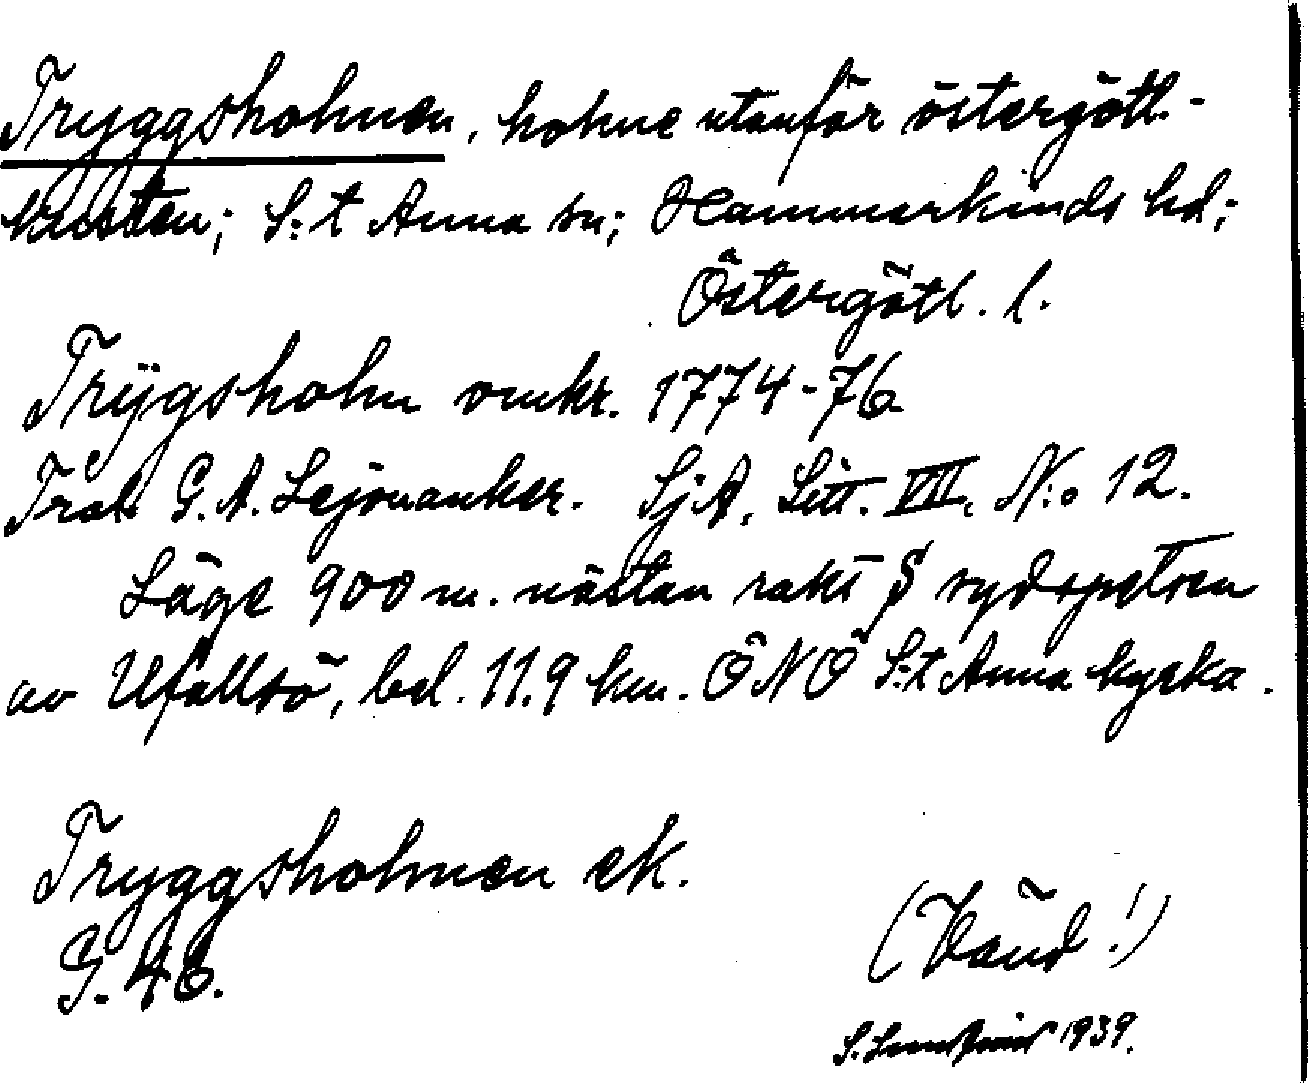 Tryggsholmen, holme utanför östergötl.-
kusten; S:t Anna sn; Hammarkinds hd;
Östergötl. l.
Trÿgsholm omkr. 1774-76
Trol. G. A. Lejonanker. SjA, Litt. VII, N:o 12.
Läge 900 m. nästan rakt S sydspetsen
av Ufallsö, bel. 11.9 km. ÖNÖ S:t Anna kyrka.
Tryggsholmen ek.
G. 46.
(Vänd!)
S. 1939.